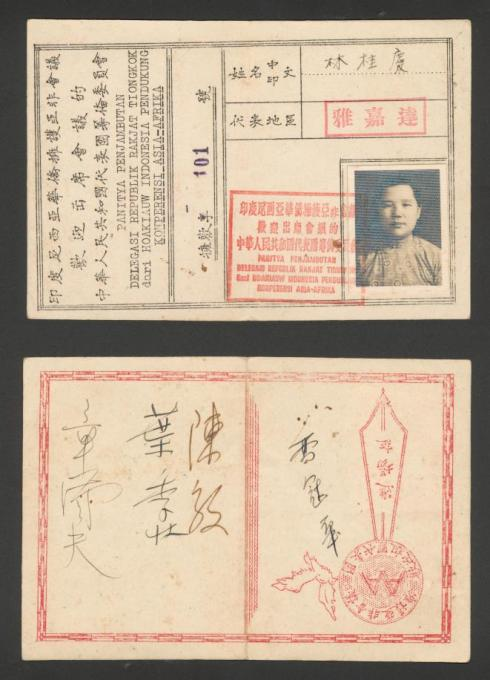 印度尼西亞華僑擁護亞非會議
歡迎出席會議的
中華人民共和國代表團籌備委員會
PANITYA PENJAMBUTAN
DELEGASI REPUBLIK RAKJAT TIONGKOK
dari HOAKIAUW INDONESIA PENDUKUNG
KONPERENSI ASIA-AFRIKA
101 號
姓名 中文 印文 林桂慶
代表地區 雅嘉達
印度尼西亞華僑擁護亞非會議
歡迎出席會議的
PANITYA PENJAMBUTAN
DELEGASI REPUBLIK RAKJAT
dari HOAKIAUW INDONESIA
KONPERENSI ASIA-AFRIKA
陳毅
葉季壯
章漢夫